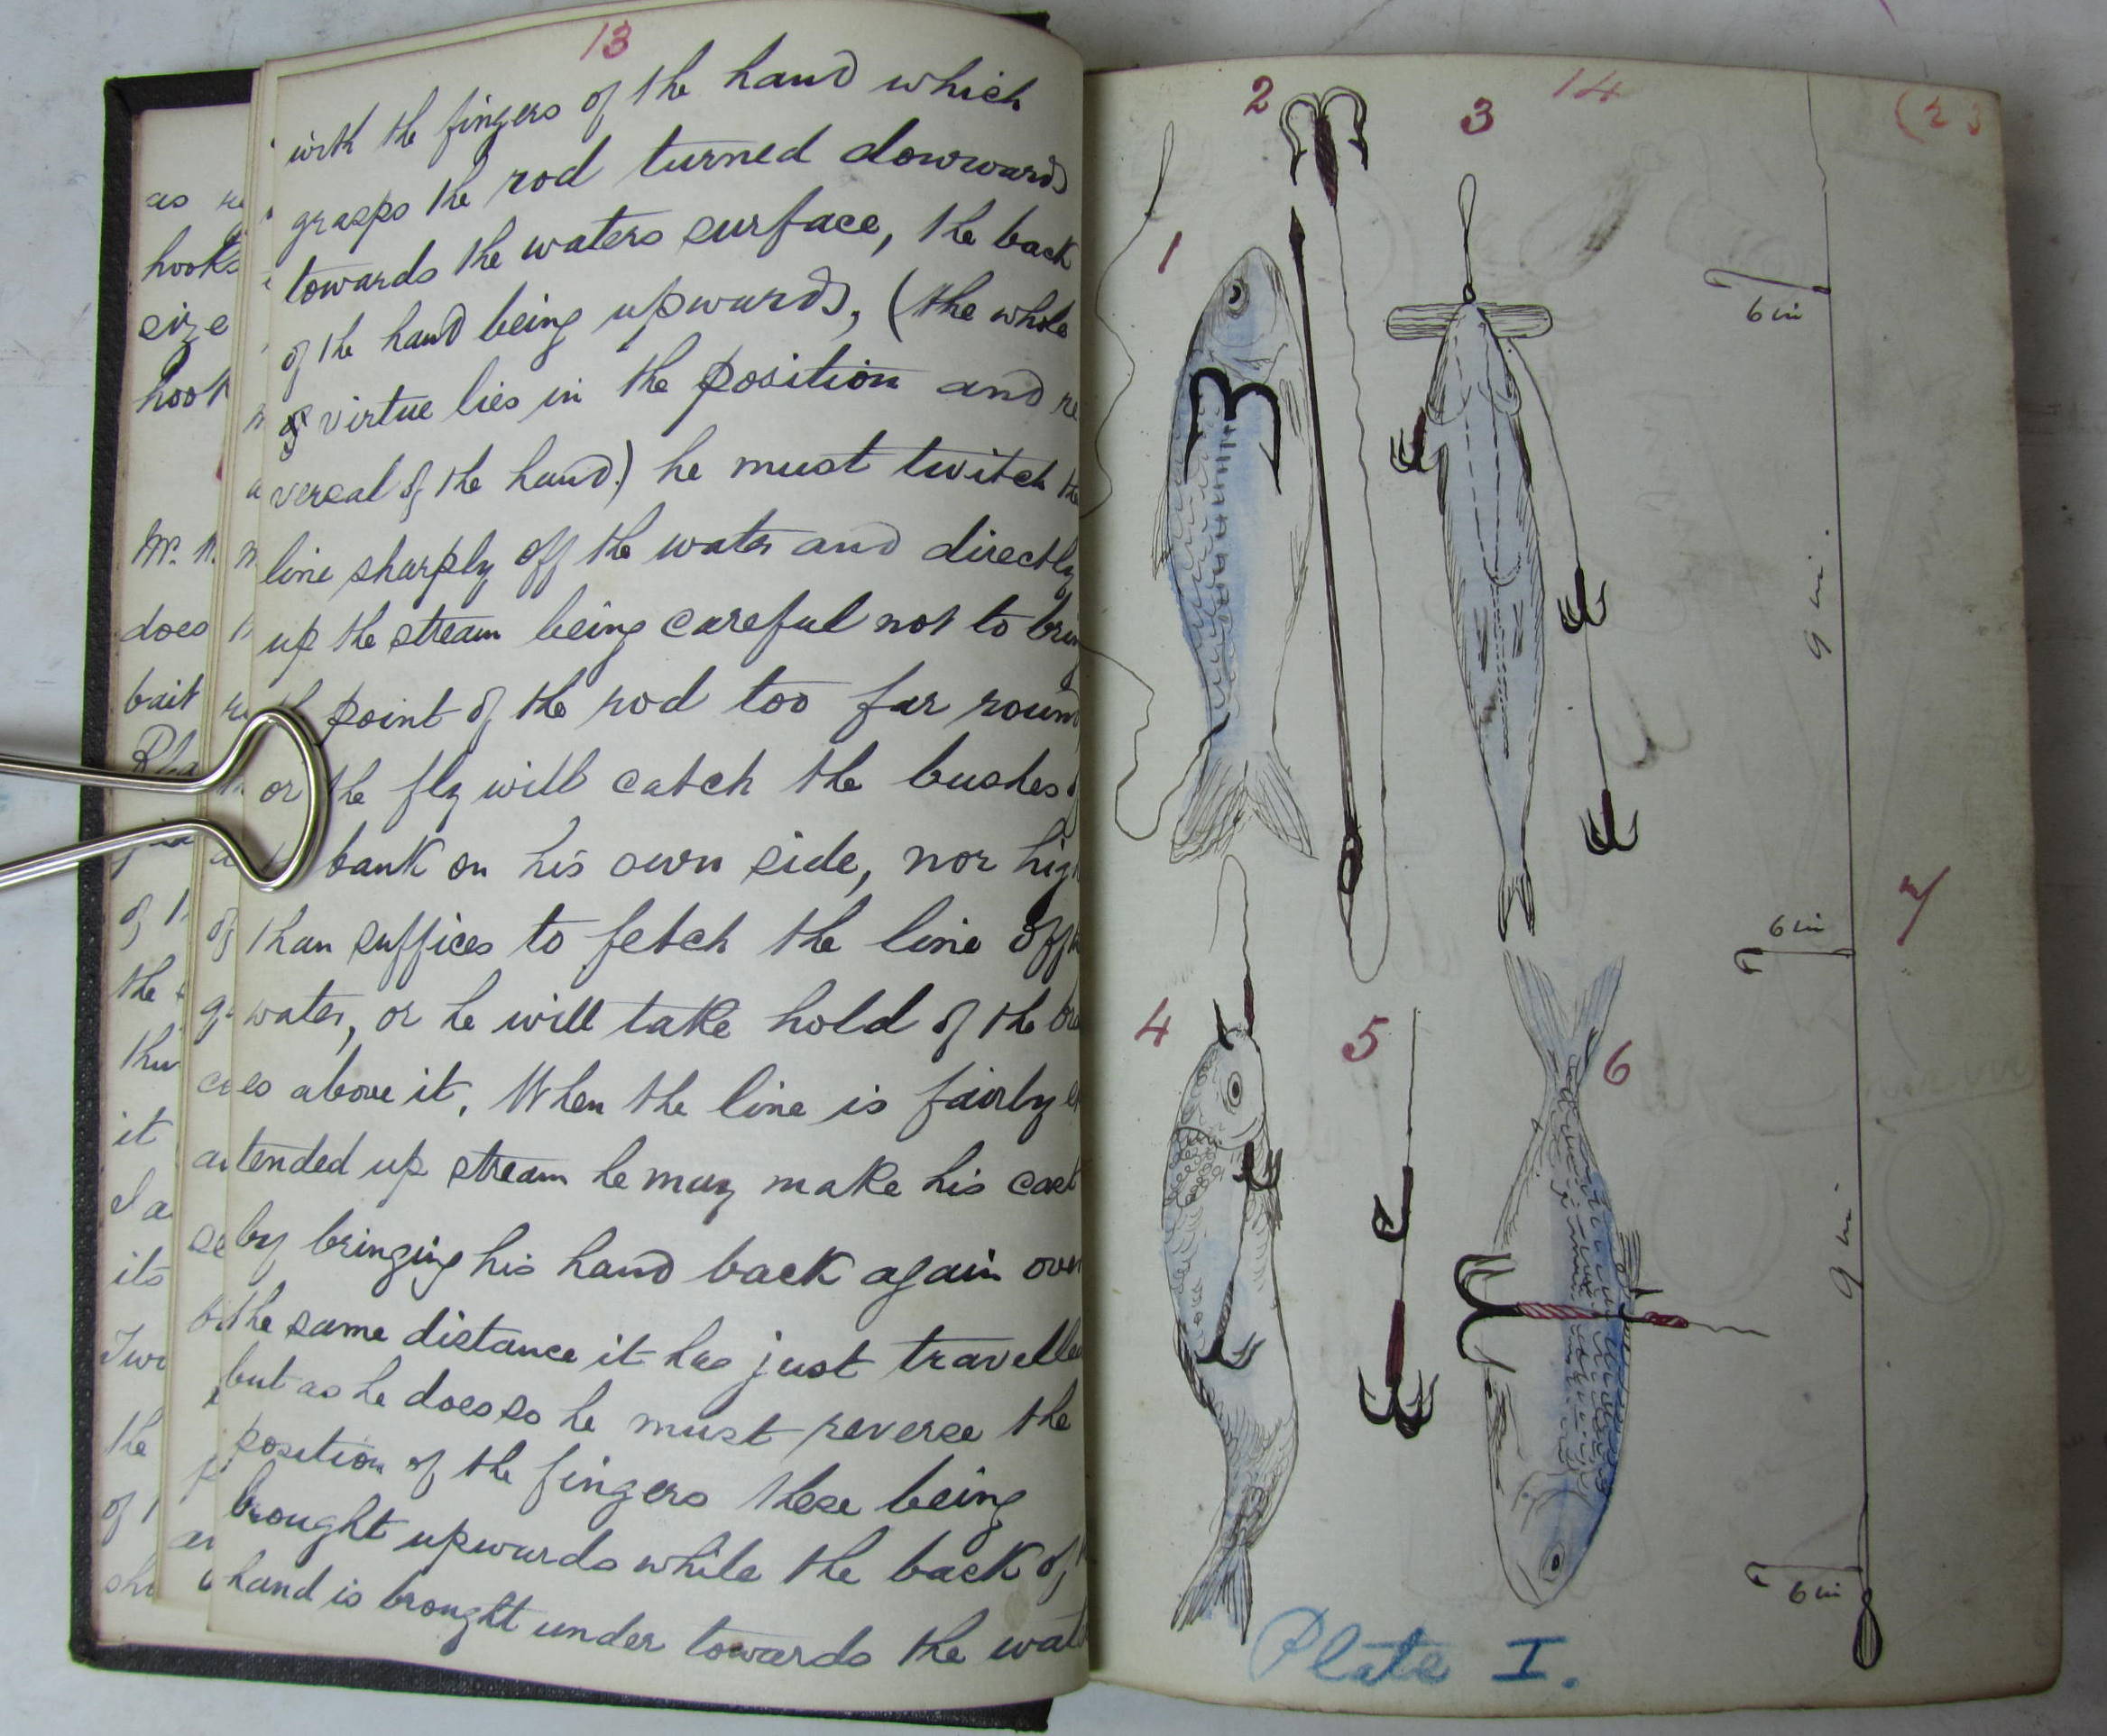 13
with the fingers of the hand which
grasps the rod turned downwards
towards the waters surface, the back
of the hand being upwards, (the whole
virtue lies in the position and re
versal of the hand.) he must twitch the
line sharply off the water and directly
up the stream being careful not to
point of the rod too far round
or the fly will catch the bushes
bank on his own side, nor
than suffices to fetch the line off
water, or he will take hold of the
es above it. When the line is fairly
tended up stream he may make his cast
by bringing his hand back again over
the same distance it has just travelle
but as he does so he must reverse the
position of the fingers these being
brought upwards while the back of
hand is brought under towards the wat
as
hooks
size
hook
Mr.
does
bait
of
the
it
its
the
of
14
2
3
1
6 in
9 in.
7
6 in
4
5
6
9 in.
6 in
Plate I.